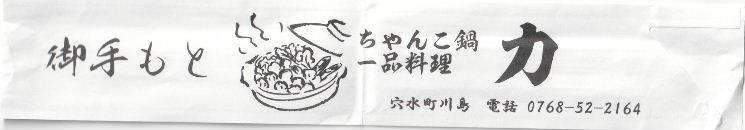 御手もと
ちゃんこ鍋
一品料理
力
穴水町川島 電話 0768-52-2164